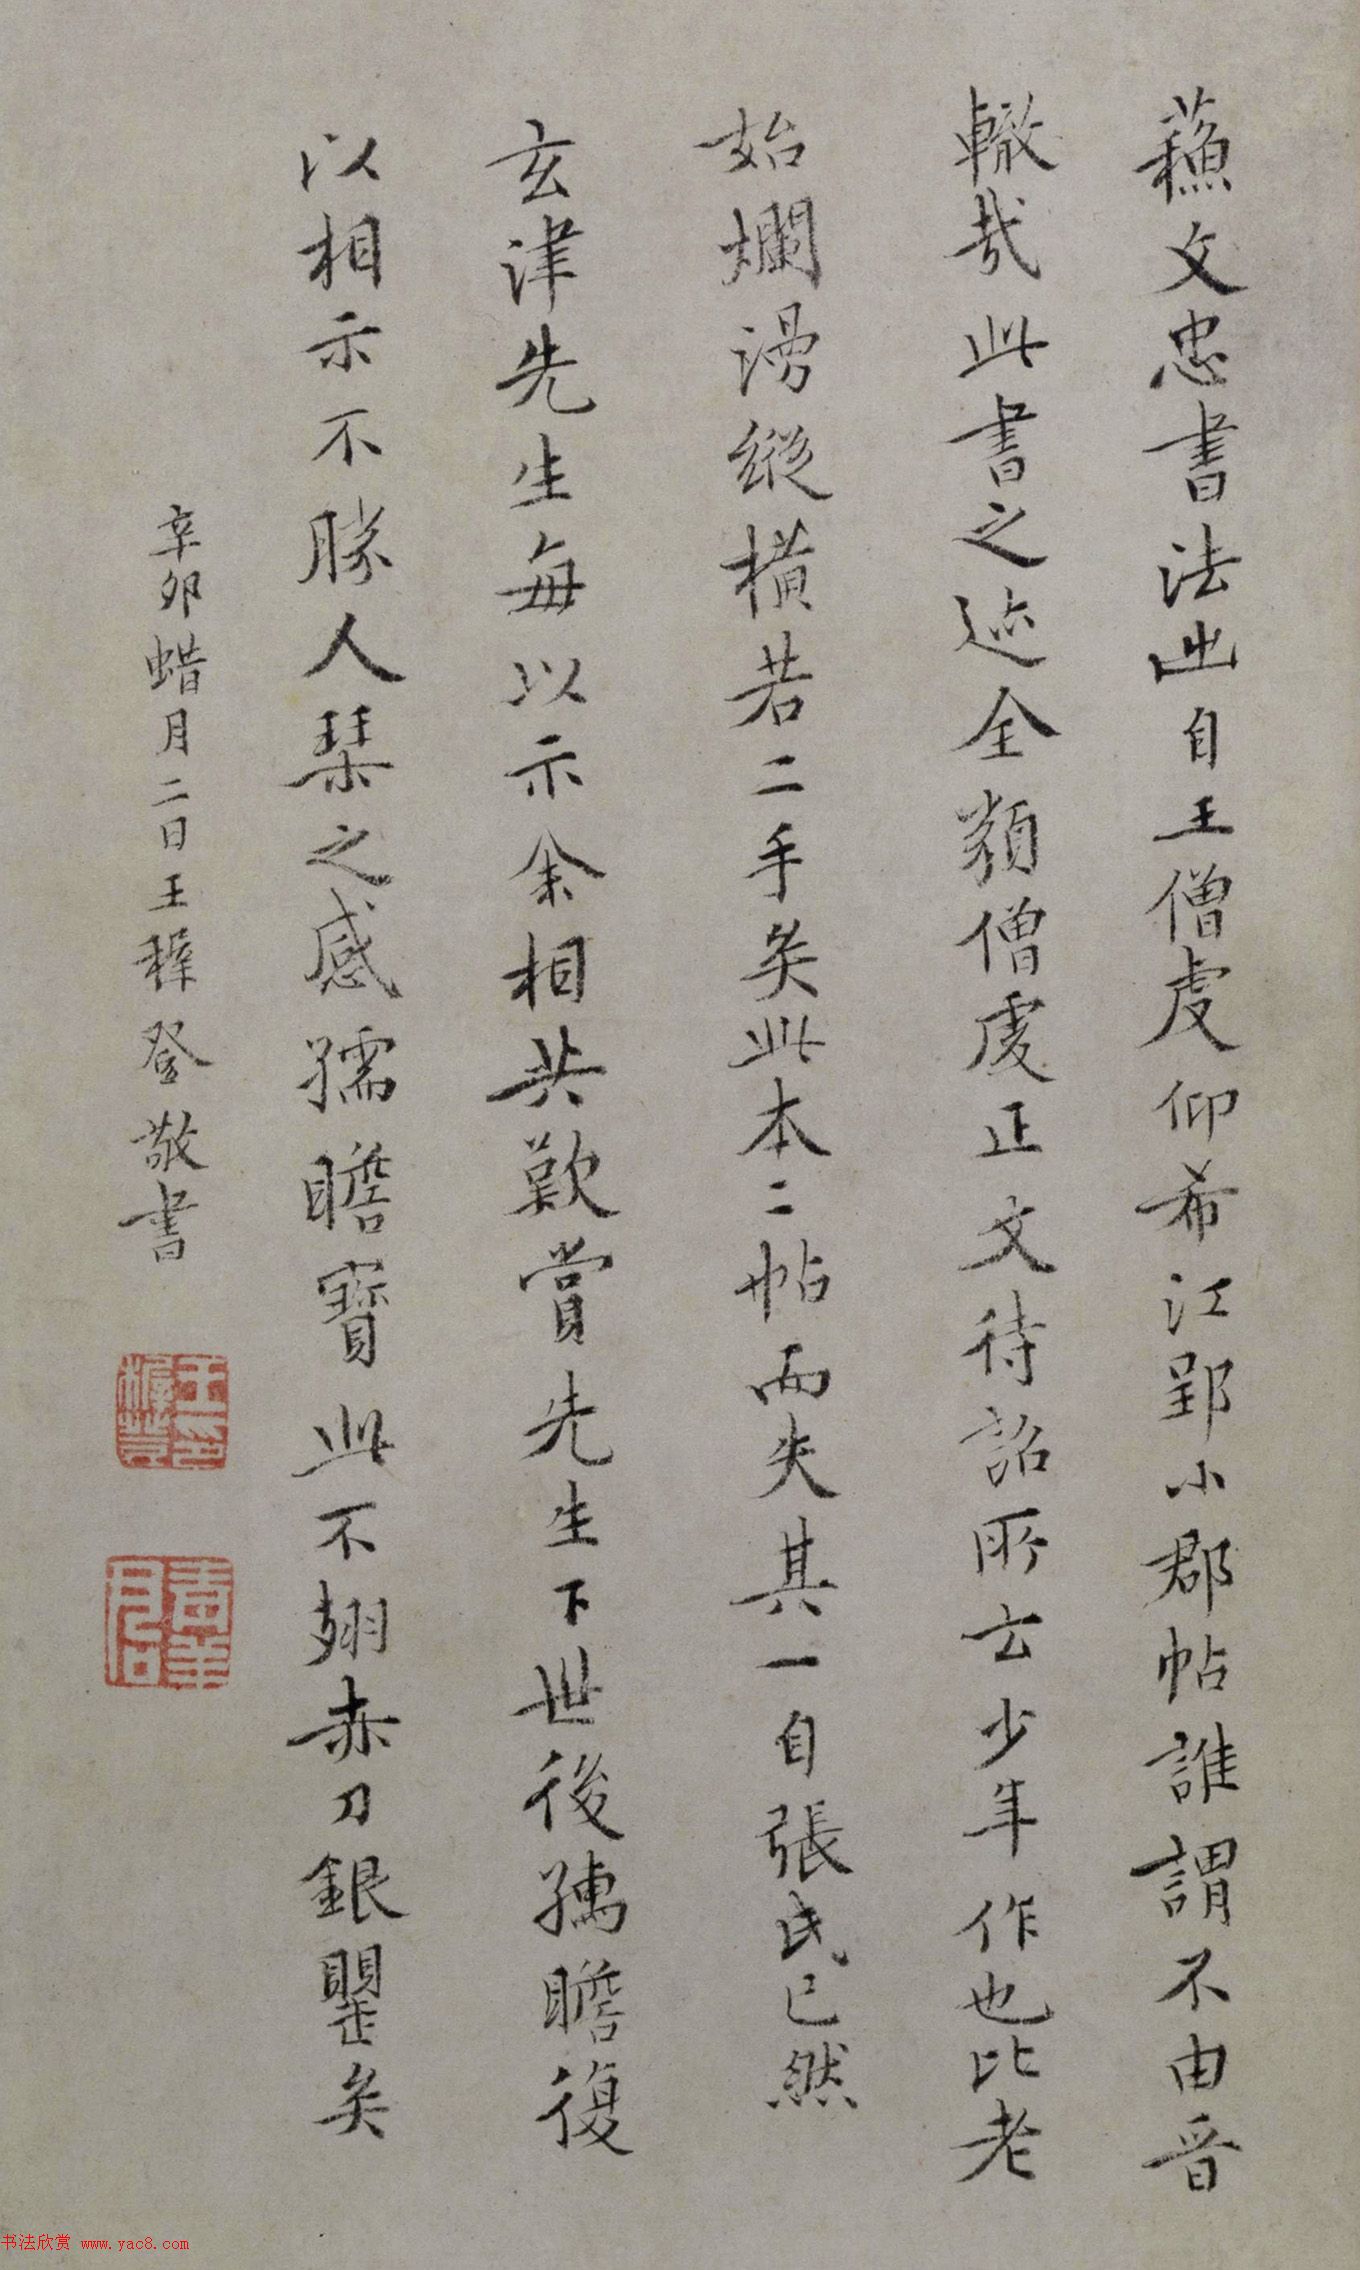 蘓文忠書法出自王僧虔仰希江郢小郡帖誰謂不由晉
轍哉此書之迹全類僧虔正文待詔所云少年作也比老
始爛漫縱橫若二手矣此本二帖而失其一自張氏已然
玄津先生每以示余相共歎賞先生下世後孺瞻復
以相示不勝人琹之感孺瞻寶此不翅赤刀銀瞿矣
辛卯蜡月二日王穉登敬書
王穉登
青羊君
书法欣赏 www.yac8.com